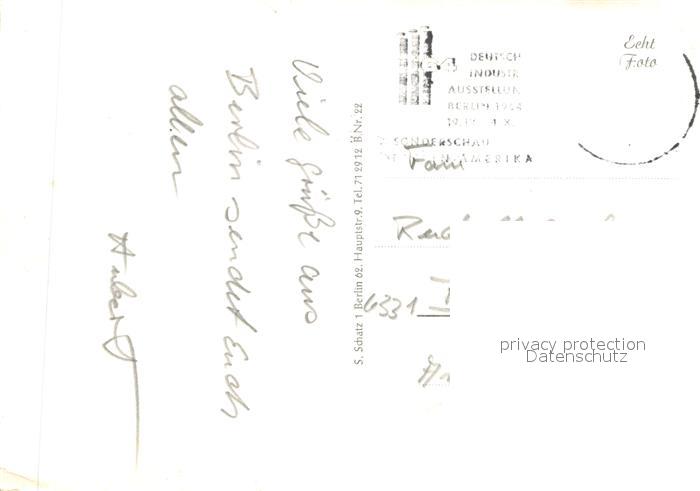 Viele Grüße aus
Berlin sendet Euch
allen
Hubert
S. Schatz 1 Berlin 62. Hauptstr. 9. Tel. 71 29 12 B.Nr. 22
DEUTSCH
INDUSTR
AUSSTELLUN
BERLIN 1964
SONDERSCHAU
AMERIKA
Echt
Foto
Fam
6331
privacy protection
Datenschutz